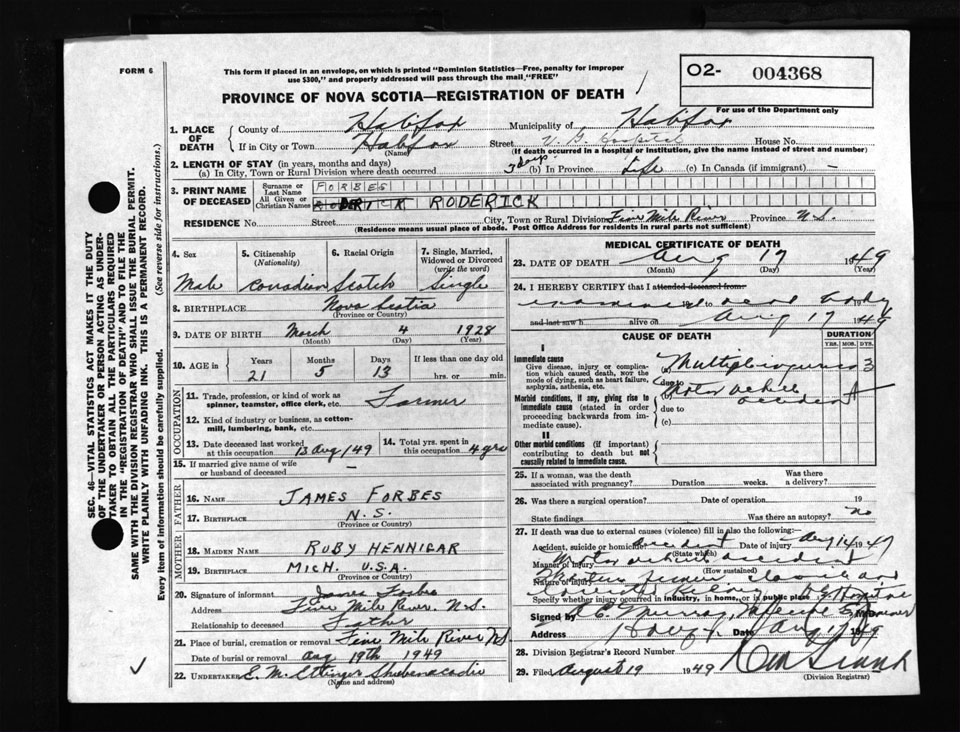 FORM 6
This form if placed in an envelope, on which is printed "Dominion Statistics—Free, penalty for improper
use $300," and properly addressed will pass through the mail "FREE"
O2- 004368
PROVINCE OF NOVA SCOTIA—REGISTRATION OF DEATH
For use of the Department only
1. PLACE OF DEATH
County of Halifax Municipality of Halifax
If in City or Town Halifax Street V. G. Hospital House No.
(Name) (If death occurred in a hospital or institution, give the name instead of street and number)
2. LENGTH OF STAY (in years, months and days)
(a) In City, Town or Rural Division where death occurred 3 days (b) In Province Life (c) In Canada (if immigrant) —
3. PRINT NAME OF DECEASED
Surname or Last Name FORBES
All Given or Christian Names RODERICK RODERICK
RESIDENCE No. Street City, Town or Rural Division Five Mile River Province N.S.
(Residence means usual place of abode. Post Office Address for residents in rural parts not sufficient)
SEC. 46—VITAL STATISTICS ACT MAKES IT THE DUTY
OF THE UNDERTAKER OR PERSON ACTING AS UNDER-
TAKER TO OBTAIN ALL THE PARTICULARS REQUIRED
IN THE "REGISTRATION OF DEATH" AND TO FILE THE
SAME WITH THE DIVISION REGISTRAR WHO SHALL ISSUE THE BURIAL PERMIT.
WRITE PLAINLY WITH UNFADING INK. THIS IS A PERMANENT RECORD.
Every item of information should be carefully supplied. (See reverse side for instructions.)
4. Sex Male
5. Citizenship (Nationality) Canadian
6. Racial Origin Scotch
7. Single, Married, Widowed or Divorced (write the word) Single
8. BIRTHPLACE Nova Scotia
(Province or Country)
9. DATE OF BIRTH March 4 1928
(Month) (Day) (Year)
10. AGE in Years 21 Months 5 Days 13 If less than one day old hrs. or min.
OCCUPATION
11. Trade, profession, or kind of work as
spinner, teamster, office clerk, etc. Farmer
12. Kind of industry or business, as cotton-
mill, lumbering, bank, etc.
13. Date deceased last worked at this occupation 13 Aug/49
14. Total yrs. spent in this occupation 4 yrs
15. If married give name of wife
or husband of deceased
FATHER
16. NAME JAMES FORBES
17. BIRTHPLACE N.S.
(Province or Country)
MOTHER
18. MAIDEN NAME RUBY HENNIGAR
19. BIRTHPLACE MICH. U.S.A.
(Province or Country)
20. Signature of informant James Forbes
Address Five Mile River, N.S.
Relationship to deceased Father
21. Place of burial, cremation or removal Five Mile River N.S.
Date of burial or removal Aug 19th 1949
22. UNDERTAKER E. M. Ettinger Shubenacadie
(Name and address)
MEDICAL CERTIFICATE OF DEATH
23. DATE OF DEATH Aug 17 1949
(Month) (Day) (Year)
24. I HEREBY CERTIFY that I attended deceased from:
examined dead body
and last saw h alive on Aug 17 1949
CAUSE OF DEATH
DURATION
YRS. MOS. DYS.
I
Immediate cause
Give disease, injury or complication which caused death, not the mode of dying, such as heart failure, asphyxia, asthenia, etc.
(a) Multiple injuries 3
due to
Motor vehicle
accident
Morbid conditions, if any, giving rise to immediate cause (stated in order proceeding backwards from immediate cause).
due to
(c)
II
Other morbid conditions (if important) contributing to death but not causally related to immediate cause.
25. If a woman, was the death associated with pregnancy? Duration weeks. Was there a delivery?
26. Was there a surgical operation? Date of operation 19
State findings Was there an autopsy? no
27. If death was due to external causes (violence) fill in also the following:—
Accident, suicide or homicide? accident Date of injury Aug 14 1949
(State which)
Manner of injury Motor vehicle accident
(How sustained)
Nature of injury
Specify whether injury occurred in industry, in home, or in public place
Signed by
Address Date Aug 17 1949
28. Division Registrar's Record Number
29. Filed August 19 1949
(Division Registrar)